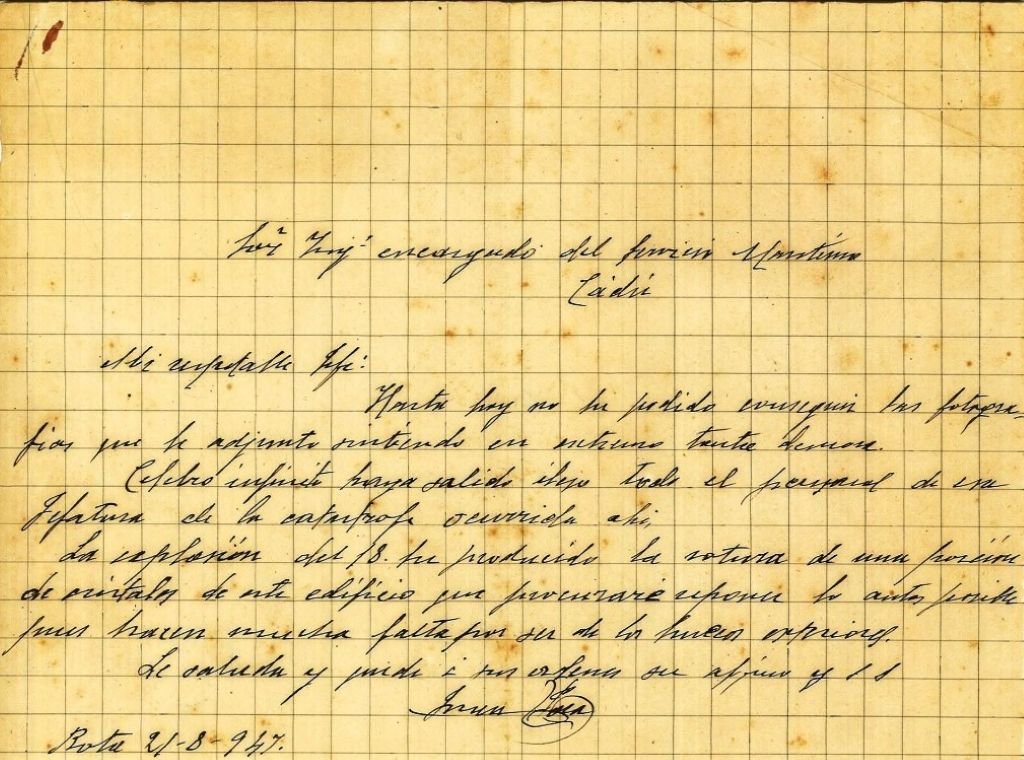 Sor Ingº encargado del Servicio Marítimo
Cádiz
Mi respetable Jefe:
Hasta hoy no he podido conseguir las fotogra-
fias que le adjunto sintiendo en extremo tanta demora.
Celebro infinito haya salido ileso todo el personal de esa
Jefatura de la catástrofe ocurrida ahi,
La explosión del 18. ha producido la rotura de una porción
de cristales de este edificio que procuraré reponer lo antes posible
pues hacen mucha falta por ser de los huecos exteriores.
Le saluda y queda a sus ordenes su afmo y s s
Juan
Rota 21-8-947.